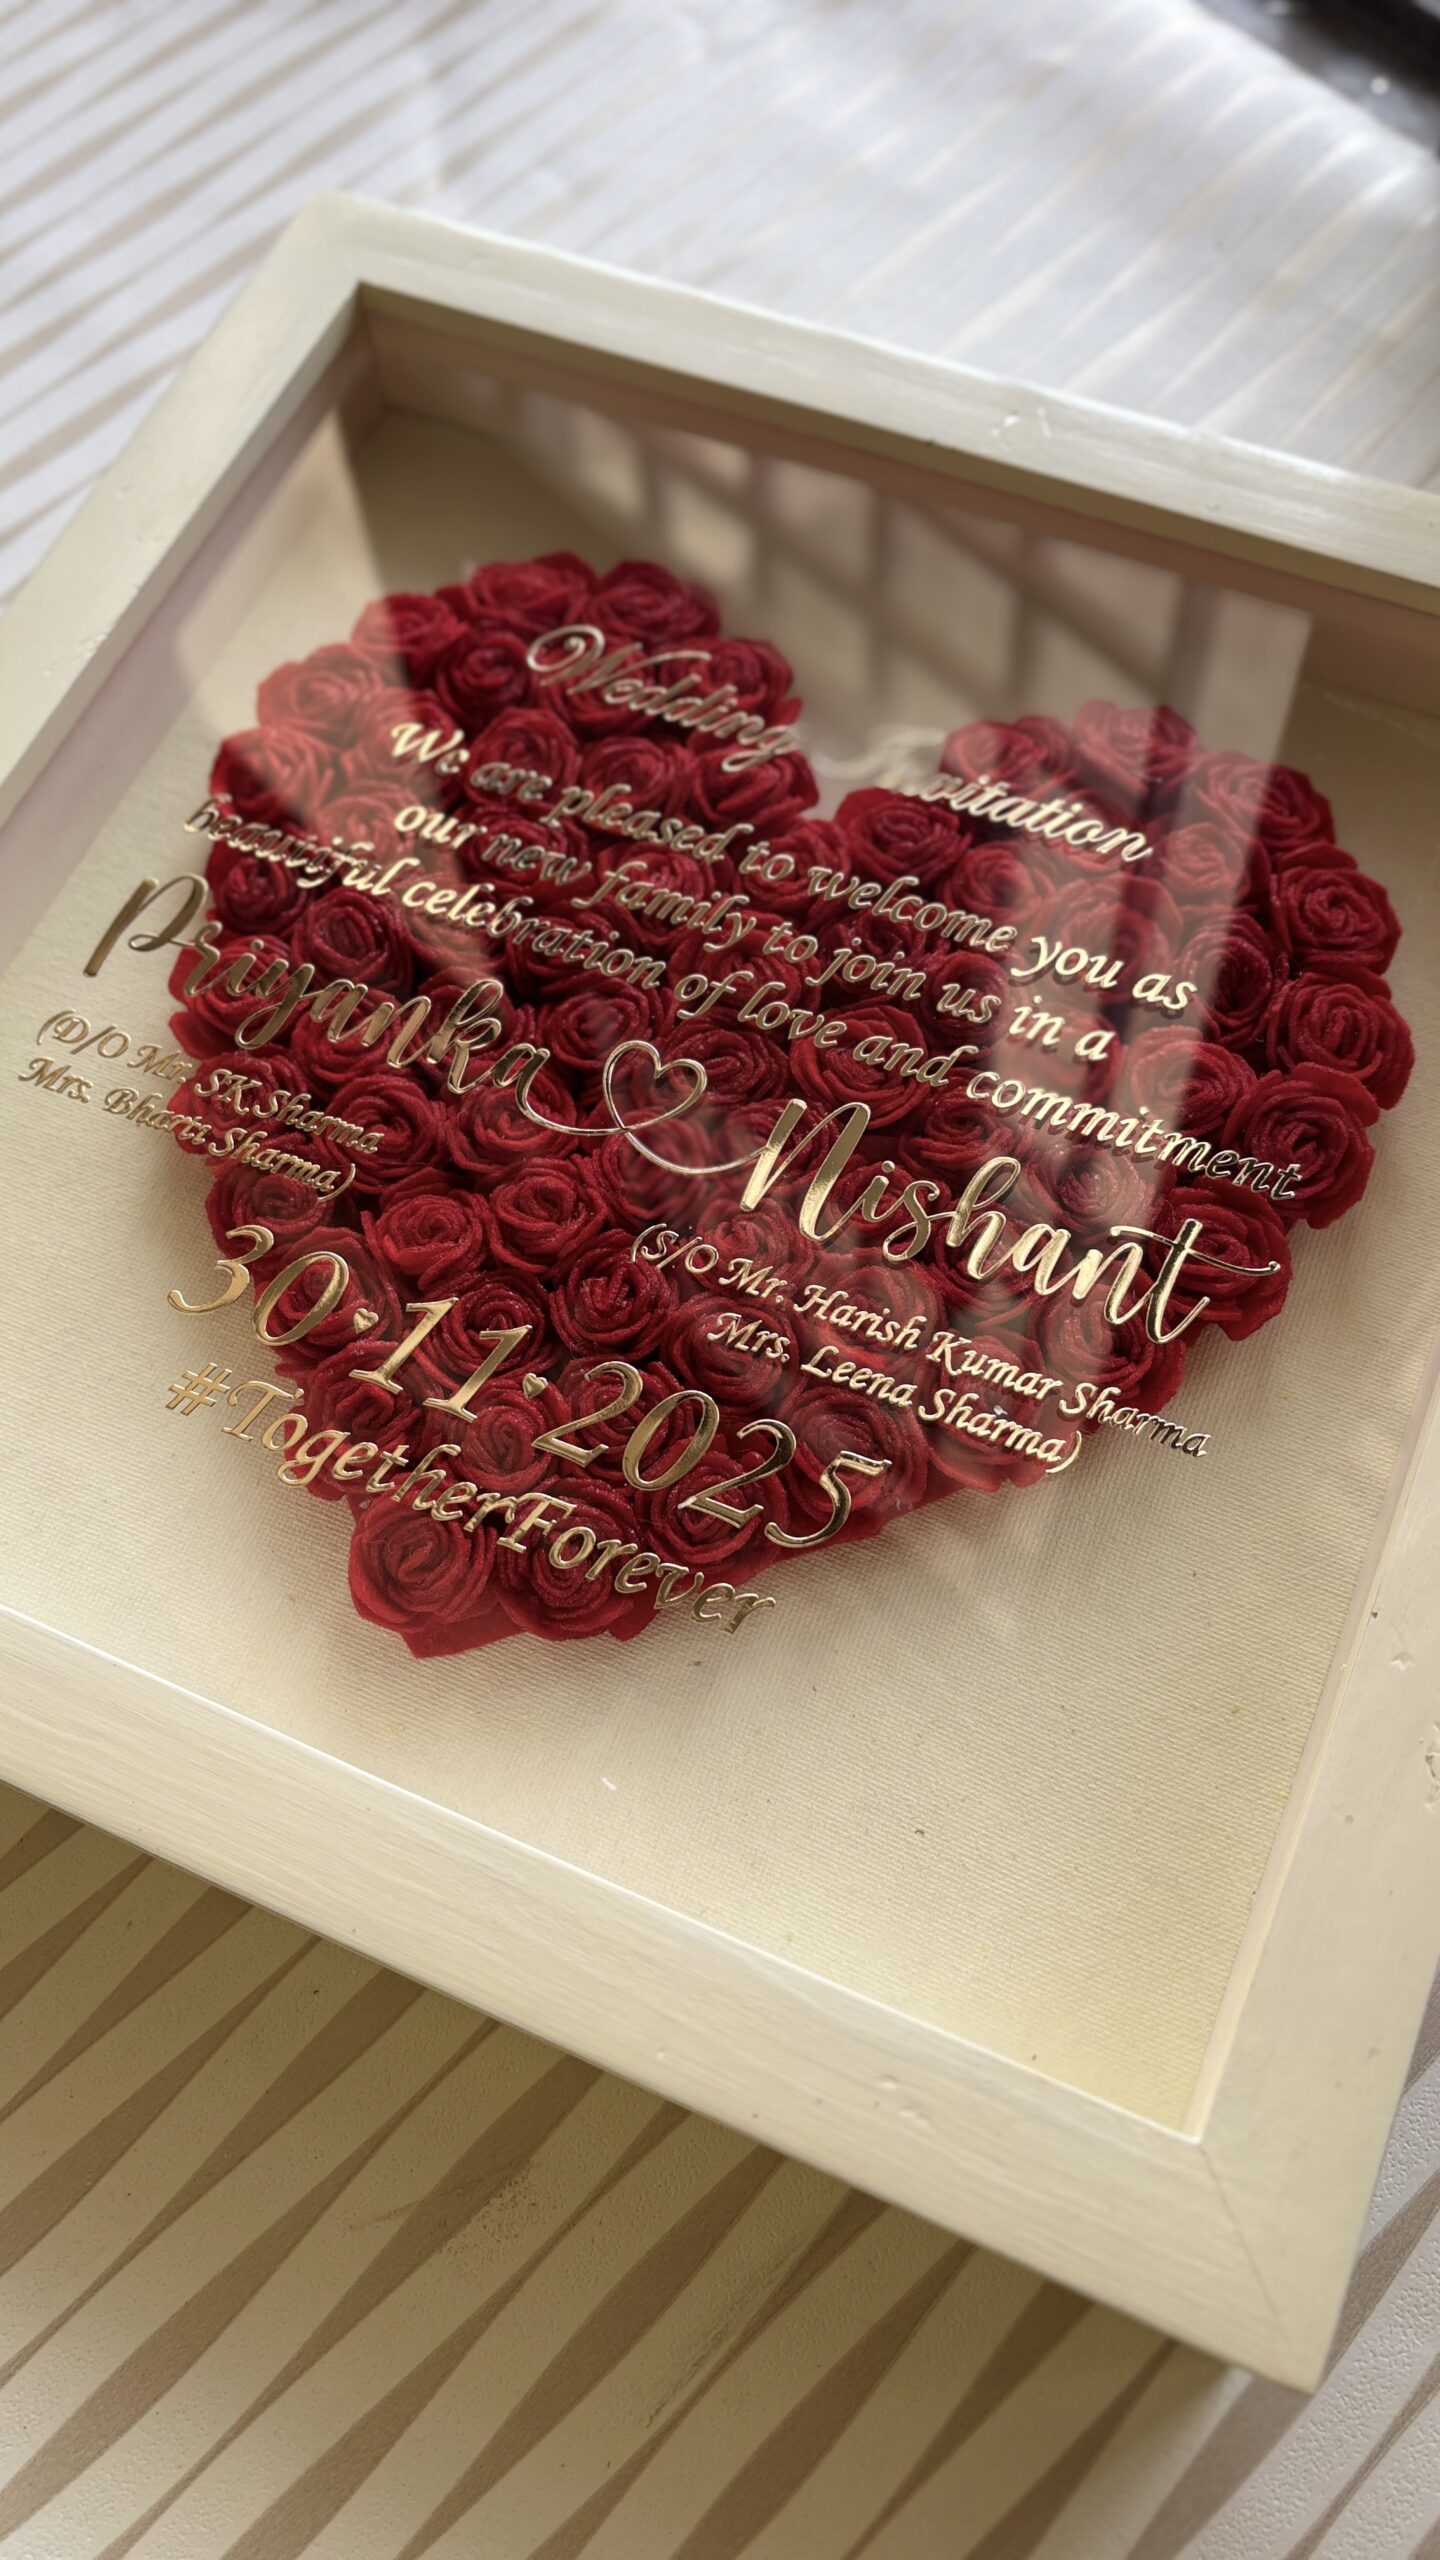 Wedding Invitation
We are pleased to welcome you as
our new family to join us in a
beautiful celebration of love and commitment
Priyanka
(D/O Mr. SK Sharma
Mrs. Bharti Sharma)
Nishant
(S/O Mr. Harish Kumar Sharma
Mrs. Leena Sharma)
30♥11♥2025
#TogetherForever